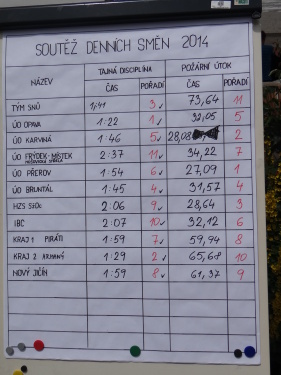 SOUTĚŽ DENNÍCH SMĚN 2014
NÁZEV TAJNÁ DISCIPLÍNA POŽÁRNÍ ÚTOK
ČAS POŘADÍ ČAS POŘADÍ
TÝM SNŮ 1:41 3 73,64 11
ÚO OPAVA 1:22 1 32,05 5
ÚO KARVINÁ 1:46 5 28,08 2
ÚO FRÝDEK-MÍSTEK 2:37 11 34,22 7
ÚO PŘEROV 1:54 6 27,09 1
ÚO BRUNTÁL 1:45 4 31,57 4
HZS 2:06 9 28,64 3
IBC 2:07 10 32,12 6
KRAJ 1 PIRÁTI 1:59 7 59,94 8
KRAJ 2 1:29 2 65,68 10
NOVÝ JIČÍN 1:59 8 61,37 9